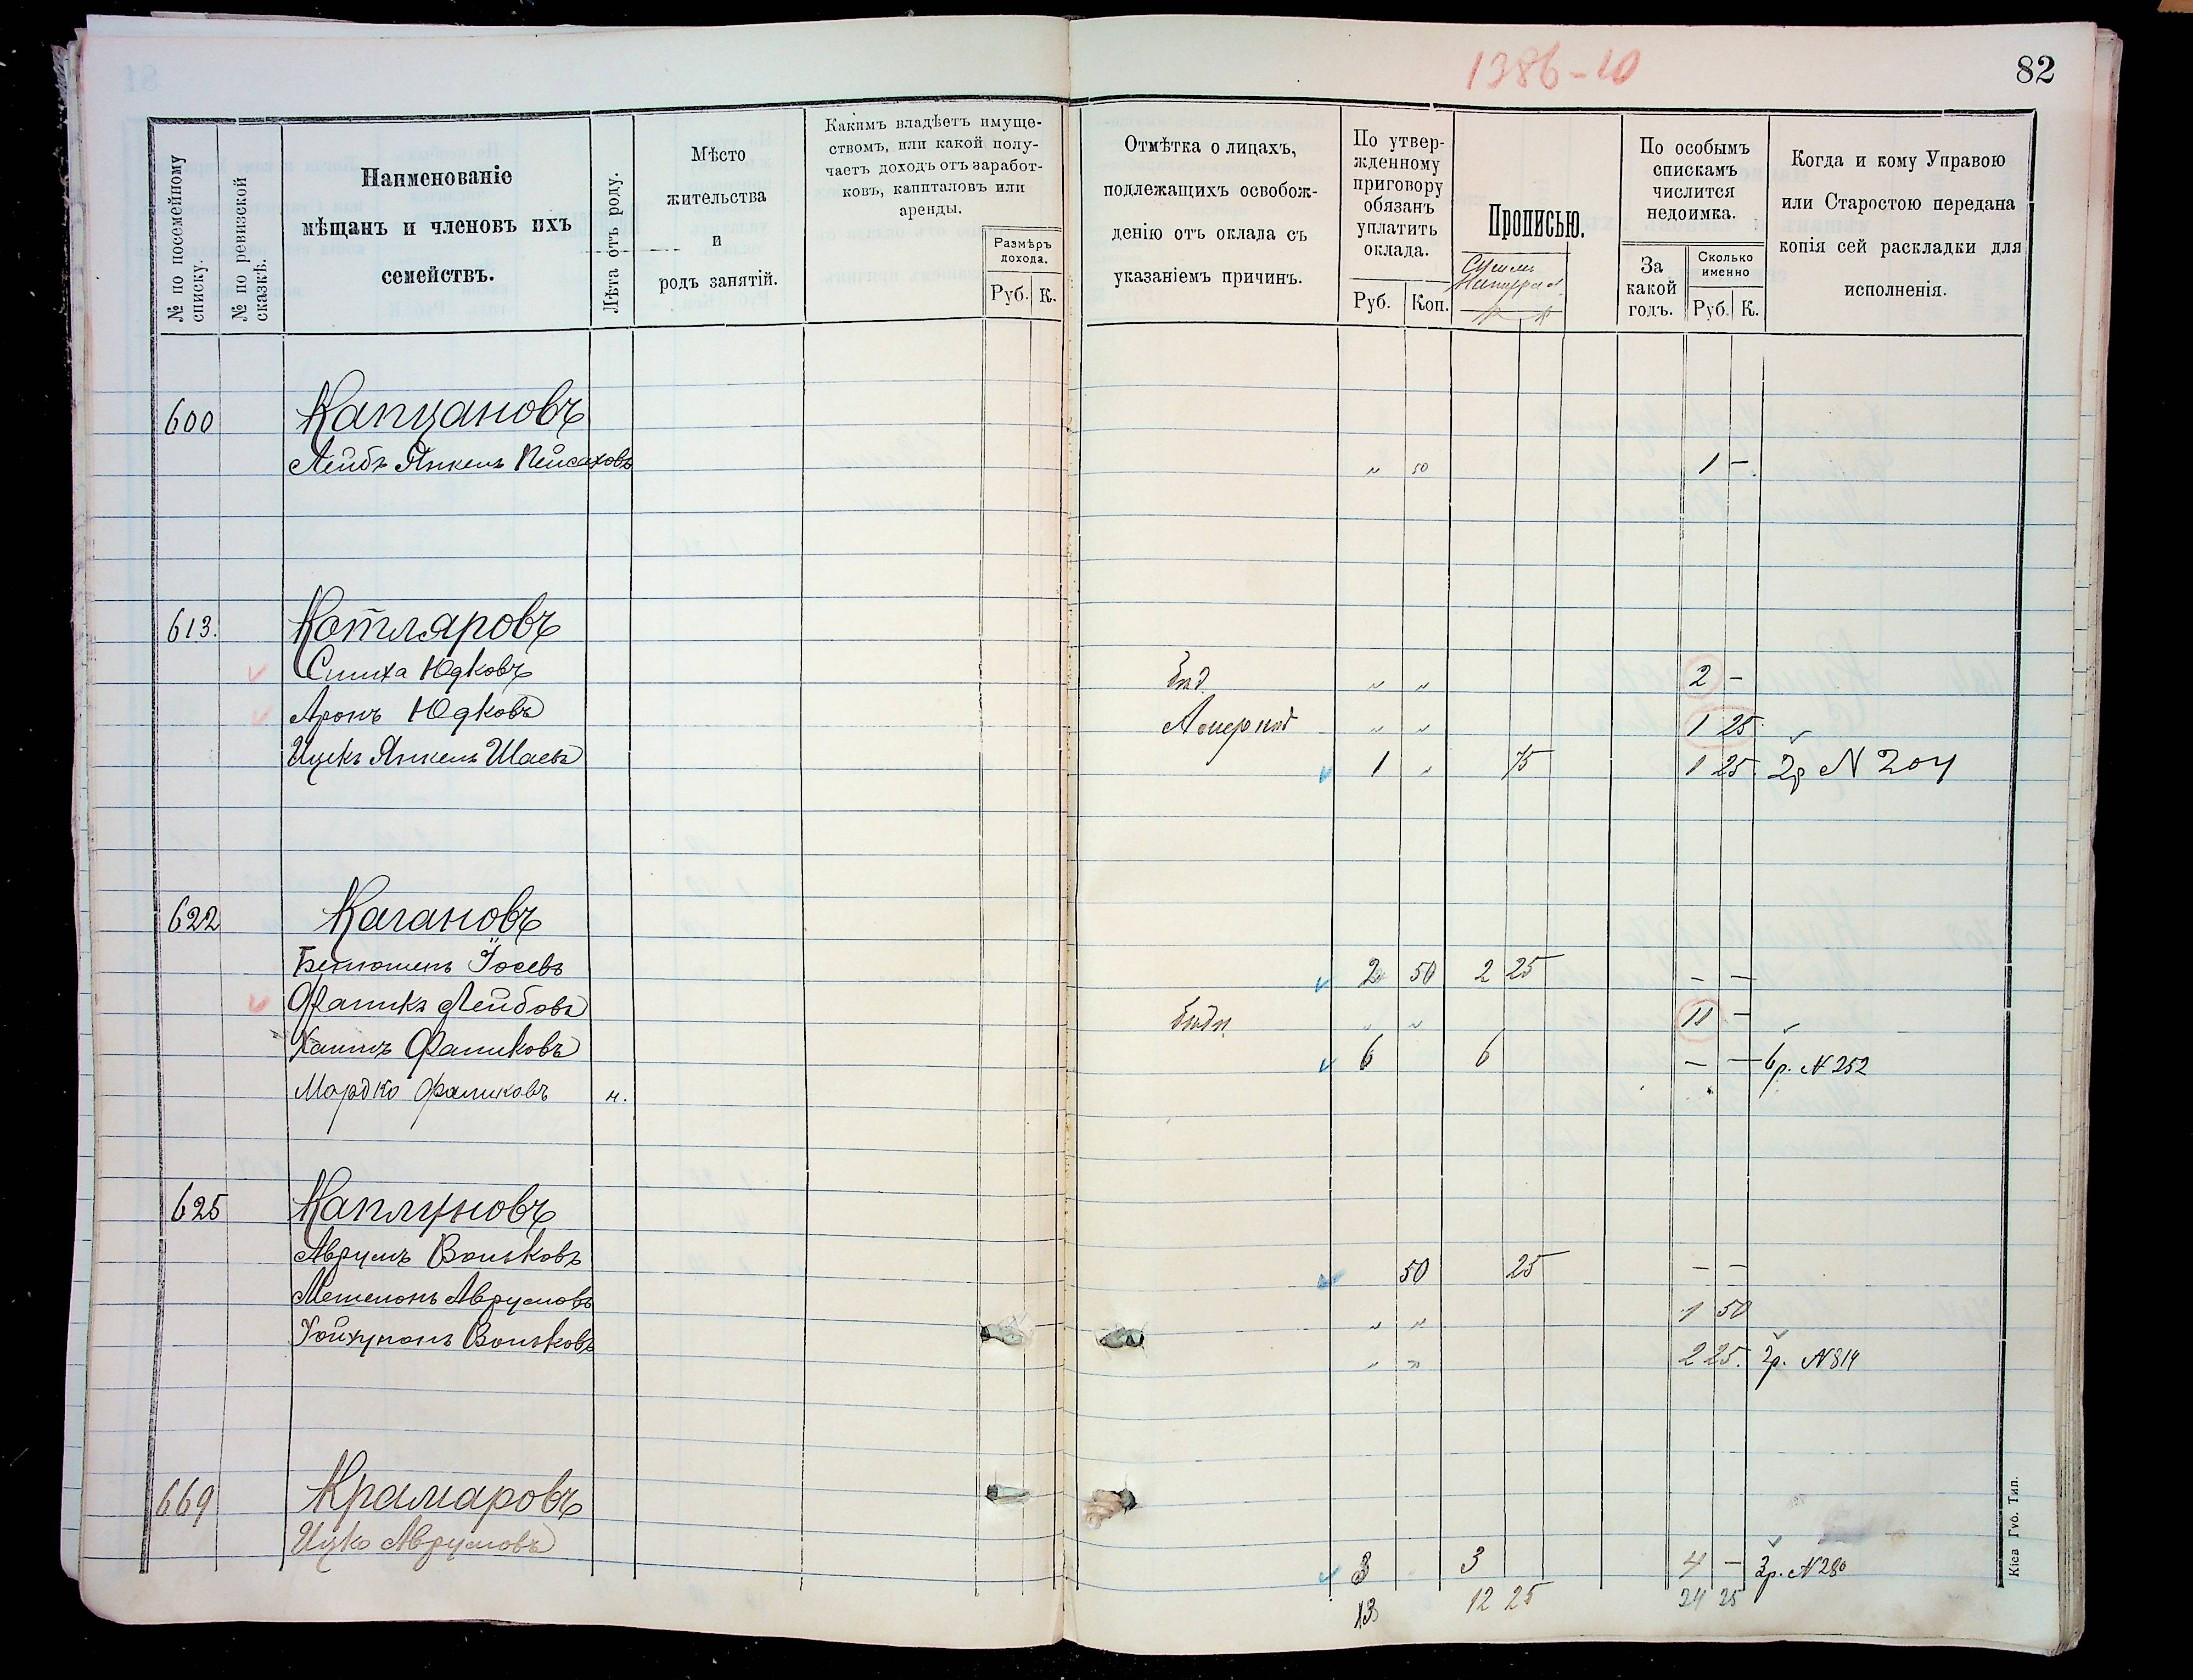 1386-10
82
№ по посемейному списку.
№ по ревизской сказкѣ.
Наименованіе
мѣщанъ и членовъ ихъ
семействъ.
Лѣта отъ роду.
Мѣсто
жительства
и
родъ занятій.
Какимъ владѣетъ имуще-
ствомъ, или какой полу-
чаетъ доходъ отъ заработ-
ковъ, капиталовъ или
аренды.
Размѣръ
дохода.
Руб. К.
Отмѣтка о лицахъ,
подлежащихъ освобож-
денію отъ оклада съ
указаніемъ причинъ.
По утвер-
жденному
приговору
обязанъ
уплатить
оклада.
Руб. Коп.
Прописью.
По особымъ
спискамъ
числится
недоимка.
За
какой
годъ.
Сколько
именно
Руб. К.
Когда и кому Управою
или Старостою передана
копія сей раскладки для
исполненія.
600 Капцановъ
Лейбъ Янкель Пейсаховъ " 50 1 -
613. Котляровъ
Симха Юдковъ " " 2 -
Аронъ Юдковъ " " 1 25
Ицекъ Янкель Шаевъ 1 " 75 1 25. 2р N 204
622 Кагановъ
Іосевъ 2 50 2 25 - -
Фаликъ Лейбовъ " " 11 -
Хаимъ Фаликовъ 6 6 - - 6р. N 252
Мордко Фаликовъ м.
625 Каплуновъ
Аврумъ Вольковъ 50 25 - -
Аврумовъ " " 1 50
Вольковъ " " 2 25. 2р. N 814
669 Крамаровъ
Ицко Аврумовъ 3 3 4 - 3р. N 280
13 12 25 24 25
Кіев. Губ. Тип.